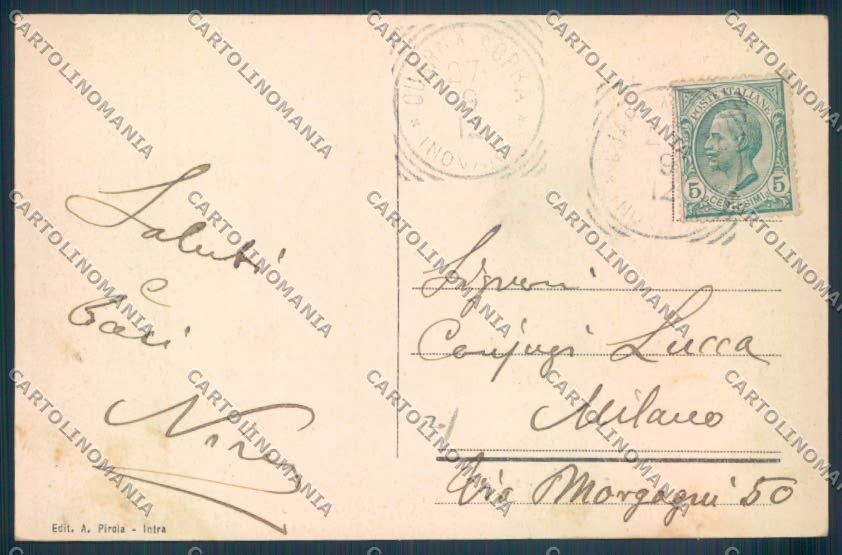 Saluti
e
Baci
Nina
Edit. A. Pirola - Intra
POSTE ITALIANE
5 CENTESIMI 5
27
9
12
9
12
Signori
Conjugi Lucca
Milano
Via Morgagni 50
CARTOLINOMANIA